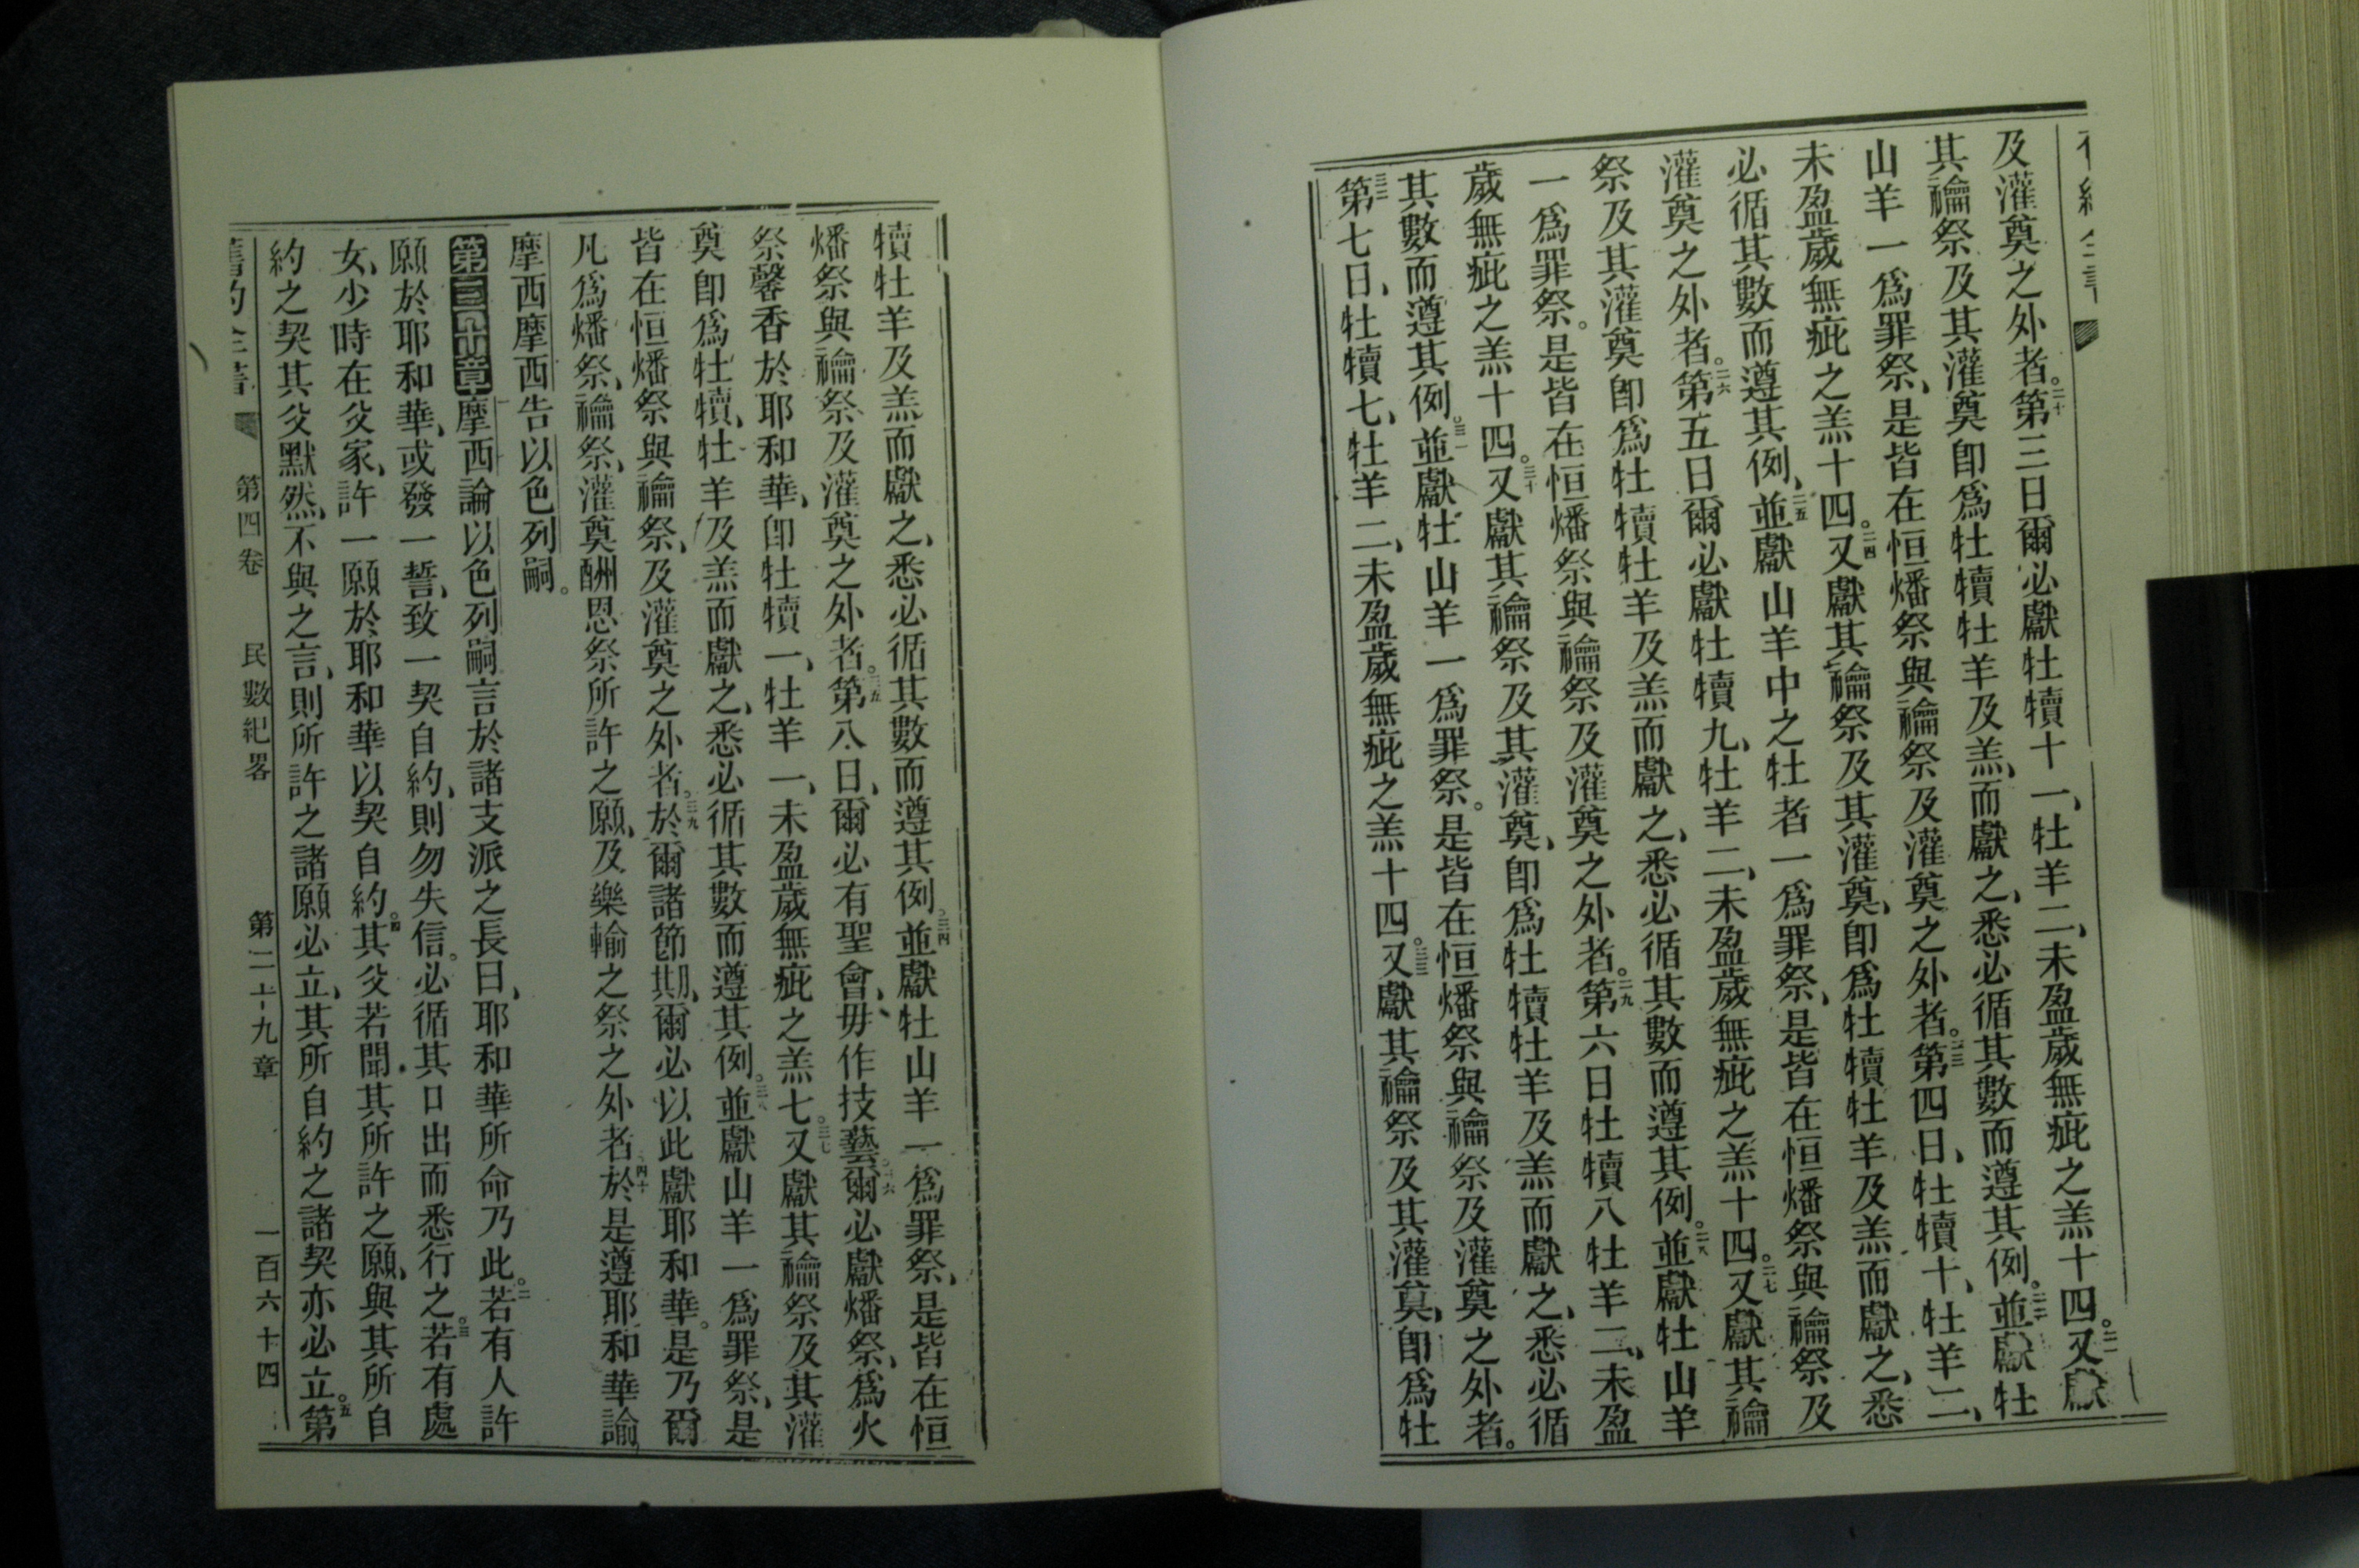 及灌奠之外者。二十第三日爾必獻牡犢十一、牡羊二、未盈歲無疵之羔十四。二一又獻
其禴祭及其灌奠卽爲牡犢牡羊及羔、而獻之、悉必循其數而遵其例。二二並獻牡
山羊一爲罪祭、是皆在恒燔祭與禴祭及灌奠之外者。二三第四日、牡犢十、牡羊二、
未盈歲無疵之羔十四。二四又獻其禴祭及其灌奠、卽爲牡犢牡羊及羔而獻之、悉
必循其數而遵其例、二五並獻山羊中之牡者一爲罪祭、是皆在恒燔祭與禴祭及
灌奠之外者。二六第五日爾必獻牡犢九、牡羊二、未盈歲無疵之羔十四。二七又獻其禴
祭及其灌奠卽爲牡犢牡羊及羔而獻之、悉必循其數而遵其例。二八並獻牡山羊
一爲罪祭。是皆在恒燔祭與禴祭及灌奠之外者。二九第六日牡犢八牡羊二、未盈
歲無疵之羔十四。三十又獻其禴祭及其灌奠、卽爲牡犢牡羊及羔而獻之、悉必循
其數而遵其例。三一並獻牡山羊一爲罪祭。是皆在恒燔祭與禴祭及灌奠之外者。
三二第七日、牡犢七、牡羊二、未盈歲無疵之羔十四。三三又獻其禴祭及其灌奠、卽爲牡
犢牡羊及羔而獻之、悉必循其數而遵其例。三四並獻牡山羊一爲罪祭、是皆在恒
燔祭與禴祭及灌奠之外者。三五第八日、爾必有聖會、毋作技藝。三六爾必獻燔祭、爲火
祭馨香於耶和華、卽牡犢一、牡羊一、未盈歲無疵之羔七。三七又獻其禴祭及其灌
奠卽爲牡犢、牡羊及羔而獻之、悉必循其數而遵其例。三八並獻山羊一爲罪祭、是
皆在恒燔祭與禴祭、及灌奠之外者。三九於爾諸節期、爾必以此獻耶和華。是乃爾
凡爲燔祭、禴祭、灌奠酬恩祭所許之願、及樂輸之祭之外者。四十於是遵耶和華諭
摩西摩西告以色列嗣。
第三十章摩西論以色列嗣言於諸支派之長曰、耶和華所命乃此。二若有人許
願於耶和華、或發一誓、致一契自約、則勿失信。必循其口出而悉行之。三若有處
女、少時在父家、許一願於耶和華以契自約。四其父若聞其所許之願、與其所自
約之契其父默然、不與之言、則所許之諸願必立、其所自約之諸契亦必立。五第
舊約全書 第四卷 民數紀畧 第二十九章 一百六十四